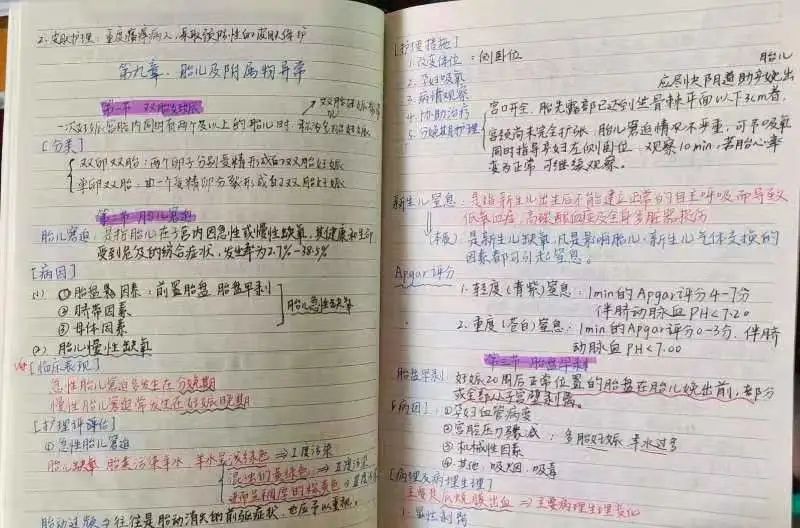 2. 皮肤护理：重度瘙痒病人，采取预防性的皮肤保护
第九章、胎儿及附属物异常
第一节 双胎妊娠
一次妊娠宫腔内同时有两个及以上的胎儿时
[分类]
双卵双胎：两个卵子分别受精形成的双胎妊娠
单卵双胎：由一个受精卵分裂形成的双胎妊娠
第二节 胎儿窘迫
胎儿窘迫：是指胎儿在子宫内因急性或慢性缺氧，其健康和生命
受到危及的综合症状，发生率为2.7%-38.5%
[病因]
(1) ①胎盘 因素：前置胎盘 胎盘早剥
②脐带因素
③母体因素
胎儿急性缺氧
(2) 胎儿慢性缺氧
[临床表现]
急性胎儿窘迫多发生在分娩期
慢性胎儿窘迫常发生在妊娠晚期
[护理评估]
①急性胎儿窘迫
胎儿缺氧 胎粪污染羊水 羊水呈浅绿色⇒I度污染
混浊的黄绿色⇒II度污染
稠厚的棕黄色⇒III度
胎动过频→往往是胎动消失的前驱症状，也应予以重视。
[护理措施]
1. 改变体位：侧卧位
2. 孕妇吸氧
3. 病情观察
4. 协助治疗
5. 分娩期护理
宫口开全，胎先露部已达到坐骨棘平面以下3cm者，
应尽快阴道助产娩出
胎儿
宫颈尚未完全扩张，胎儿窘迫情况不严重，可予吸氧
同时指导产妇左侧卧位，观察10min，若胎心率
变为正常 可继续观察。
新生儿窒息：是指新生儿出生后不能建立正常的自主呼吸而导致
低氧血症、高碳酸血症及全身多脏器损伤
(本质) 是新生儿缺氧，凡是影响胎儿、新生儿气体交换的
因素都可引起窒息。
Apgar评分
1. 轻度(青紫)窒息：1min的Apgar评分4-7分
伴脐动脉血PH<7.20
2. 重度(苍白)窒息：1min的Apgar评分0-3分，伴脐
动脉血PH<7.00
第三节 胎盘早剥
胎盘早剥 妊娠20周后正常位置的胎盘在胎儿娩出前，部分
或全部从子宫壁剥离。
[病因]：①孕妇血管病变
②宫腔压力骤减：多胎妊娠 羊水过多
③机械性因素
④其他 吸烟、吸毒
[病理及病理生理]
主要是底蜕膜出血⇒主要病理生理变化
1. 显性剥离